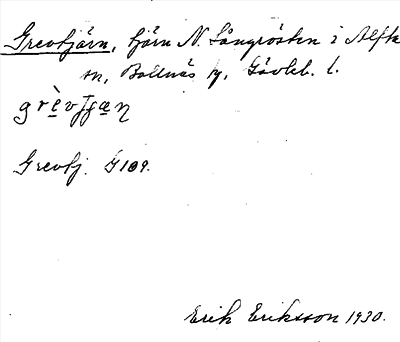 Grevtjärn, tjärn N. Långrösten i Alfta
sn, Bollnäs tg, Gävleb. l.
Grevtj. G 109.
Erik Eriksson 1930.